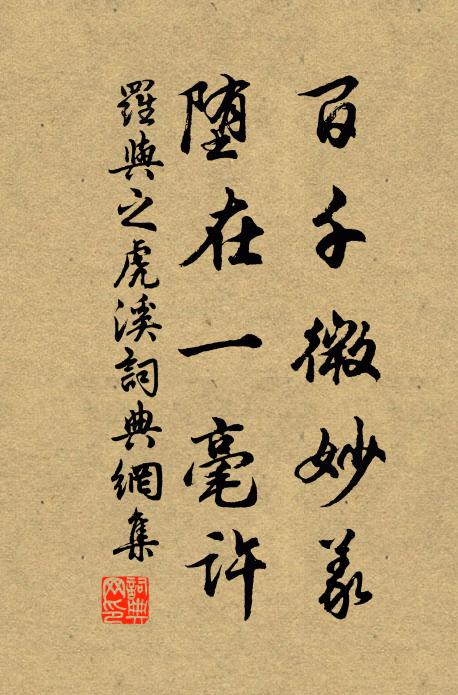 百千微妙義
堕在一毫許
羅與之虎溪詞典網集
詞典网印